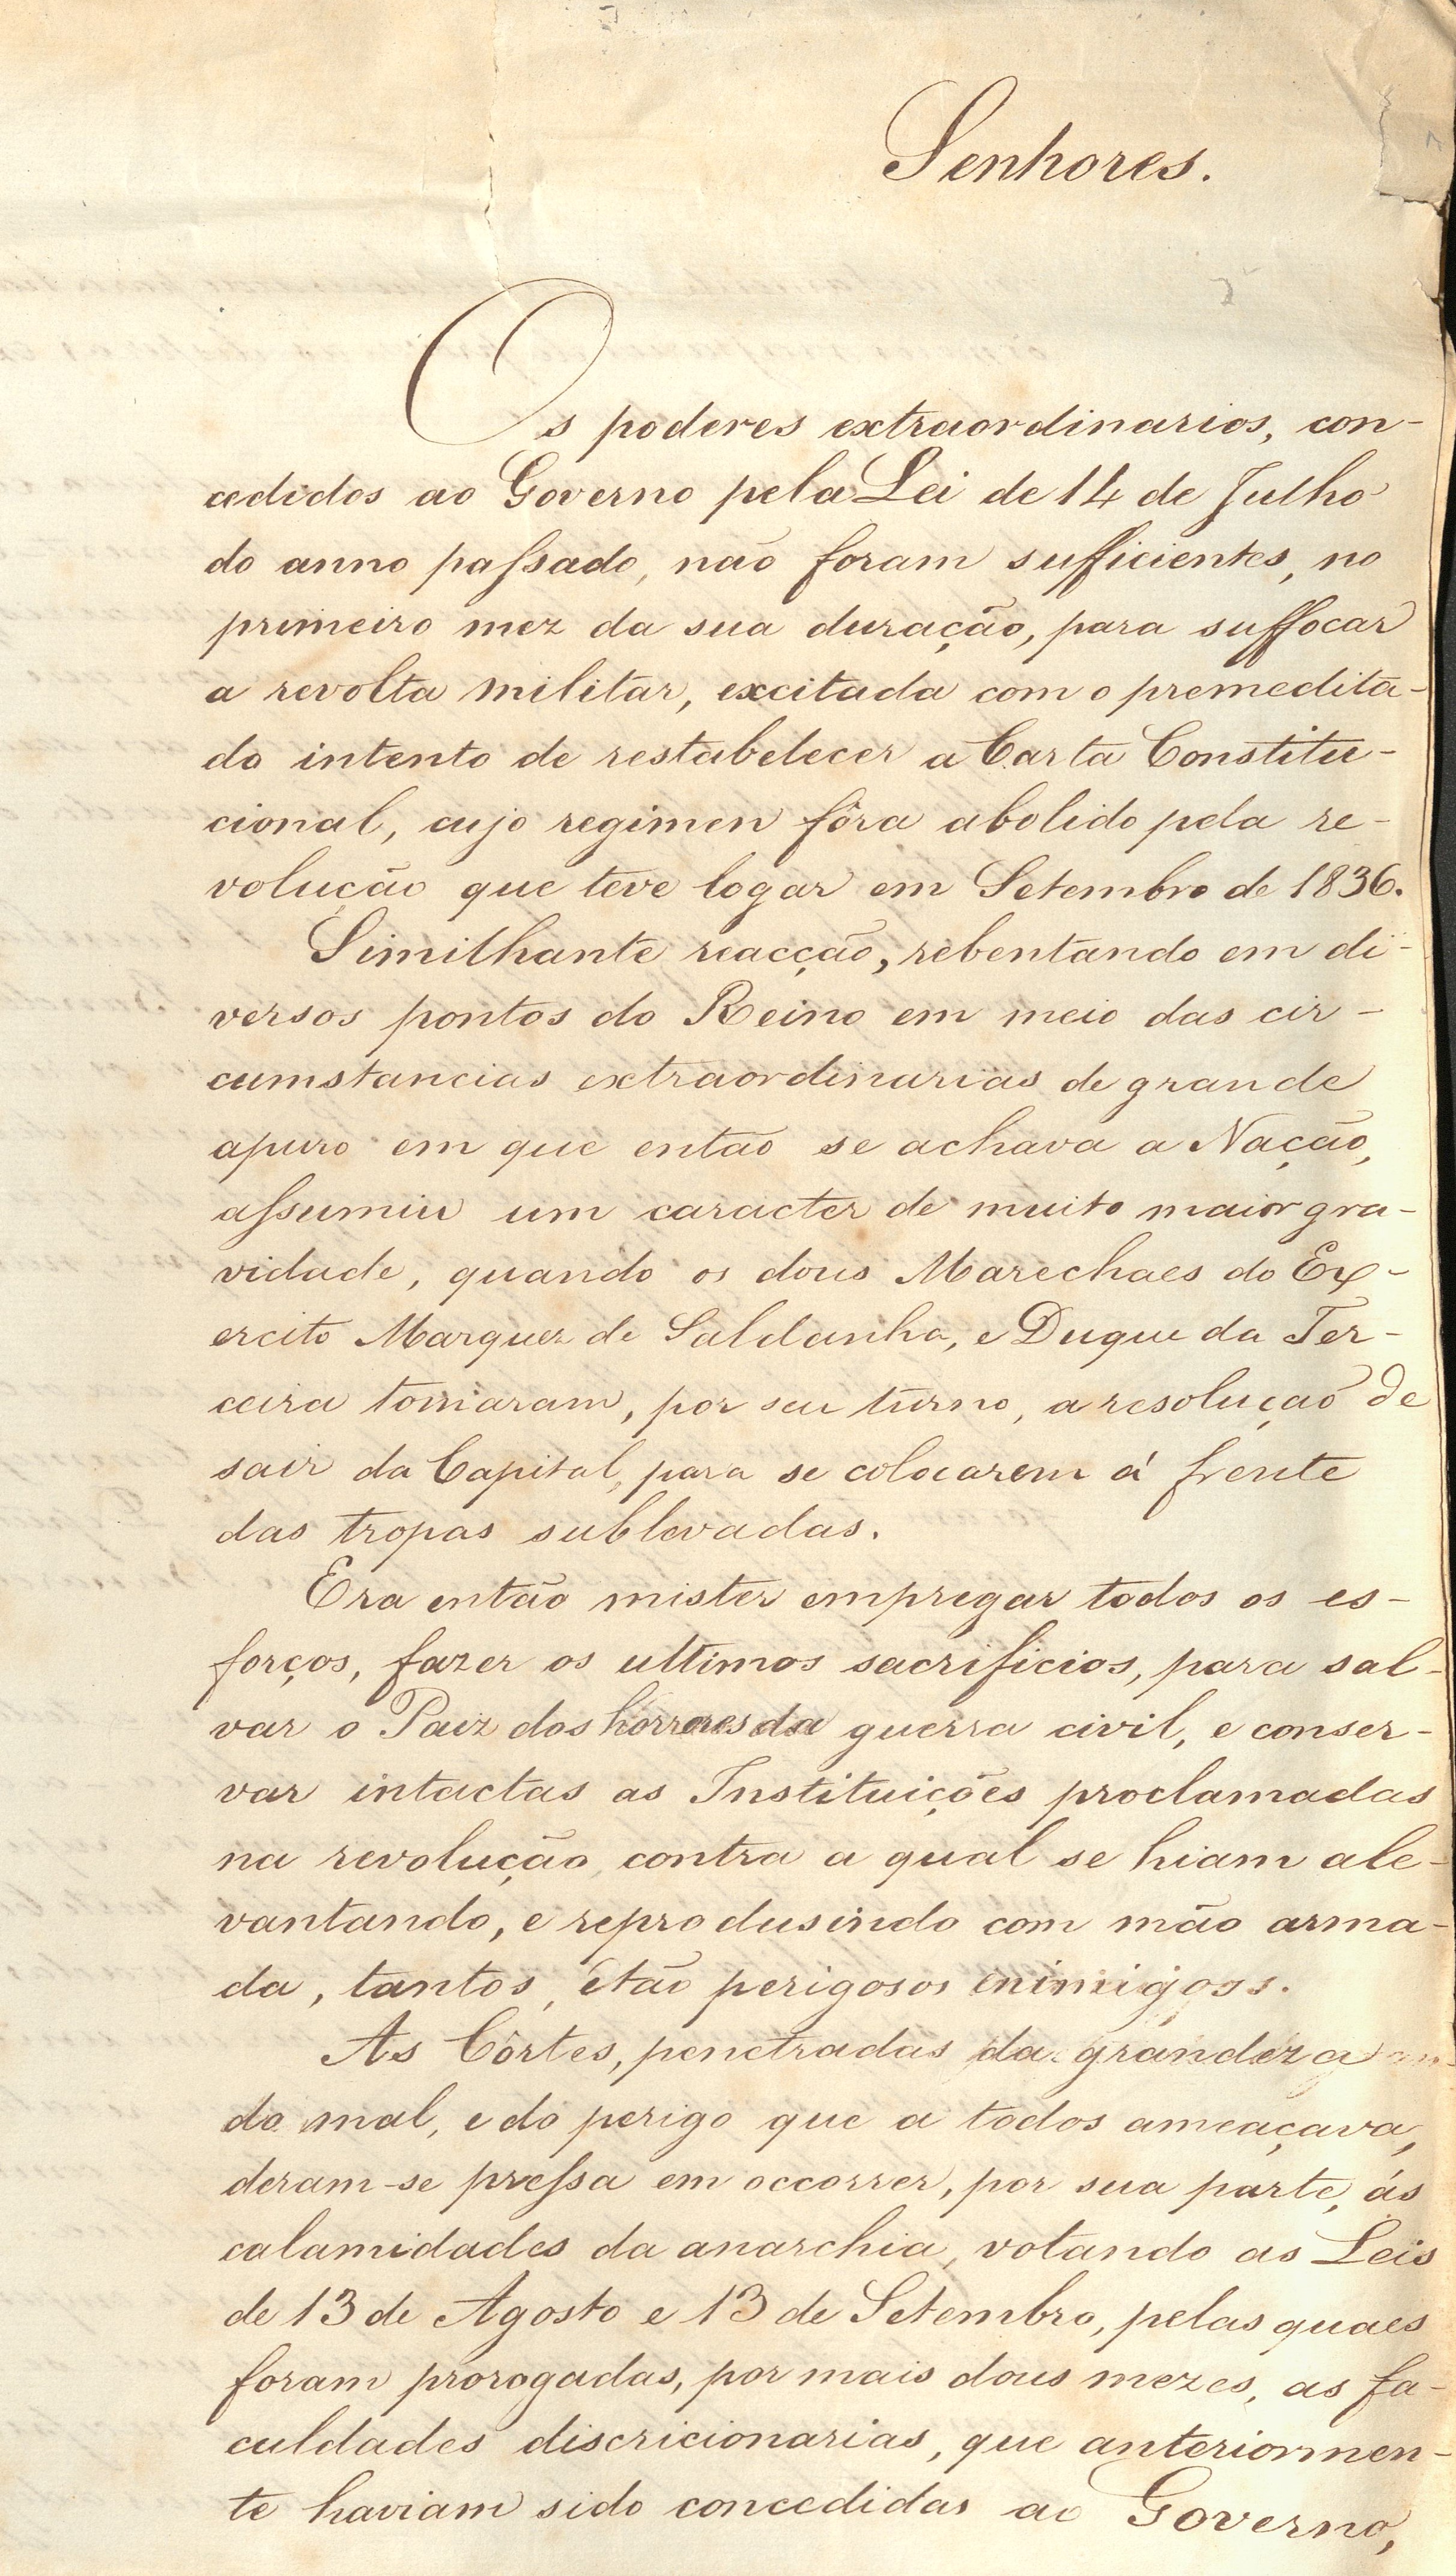 Senhores.
Os poderes extraordinarios, con-
cedidos ao Governo pela Lei de 14 de Julho
do anno paſsado, não foram sufficientes, no
primeiro mez da sua duração, para suffocar
a revolta militar, excitada com o premedita-
do intento de restabelecer a Carta Constitu-
cional, cujo regimen fôra abolido pela re-
volução que teve logar em Setembro de 1836.
Similhante reacção, rebentando em di-
versos pontos do Reino em meio das cir-
cumstancias extraordinarias de grande
apuro em que então se achava a Nação,
aſsumiu um caracter de muito maior gra-
vidade, quando os dous Marechaes do Ex-
ercito Marquez de Saldanha, e Duque da Ter-
ceira tomaram, por seu turno, a resolução de
sair da Capital, para se colocarem á frente
das tropas sublevadas.
Era então mister empregar todos os es-
forços, fazer os ultimos sacrificios, para sal-
var o Paiz dos horrores da guerra civil, e conser-
var intactas as Instituições proclamadas
na revolução, contra a qual se hiam ale-
vantando, e reprodusindo com mão arma-
da, tantos, e tão perigosos inimigos.
As Côrtes, penetradas da grandeza
do mal, e do perigo que a todos ameaçava,
deram-se preſsa em occorrer, por sua parte, ás
calamidades da anarchia, votando as Leis
de 13 de Agosto e 13 de Setembro, pelas quaes
foram prorogadas, por mais dous mezes, as fa-
culdades discricionarias, que anteriormen-
te haviam sido concedidas ao Governo,